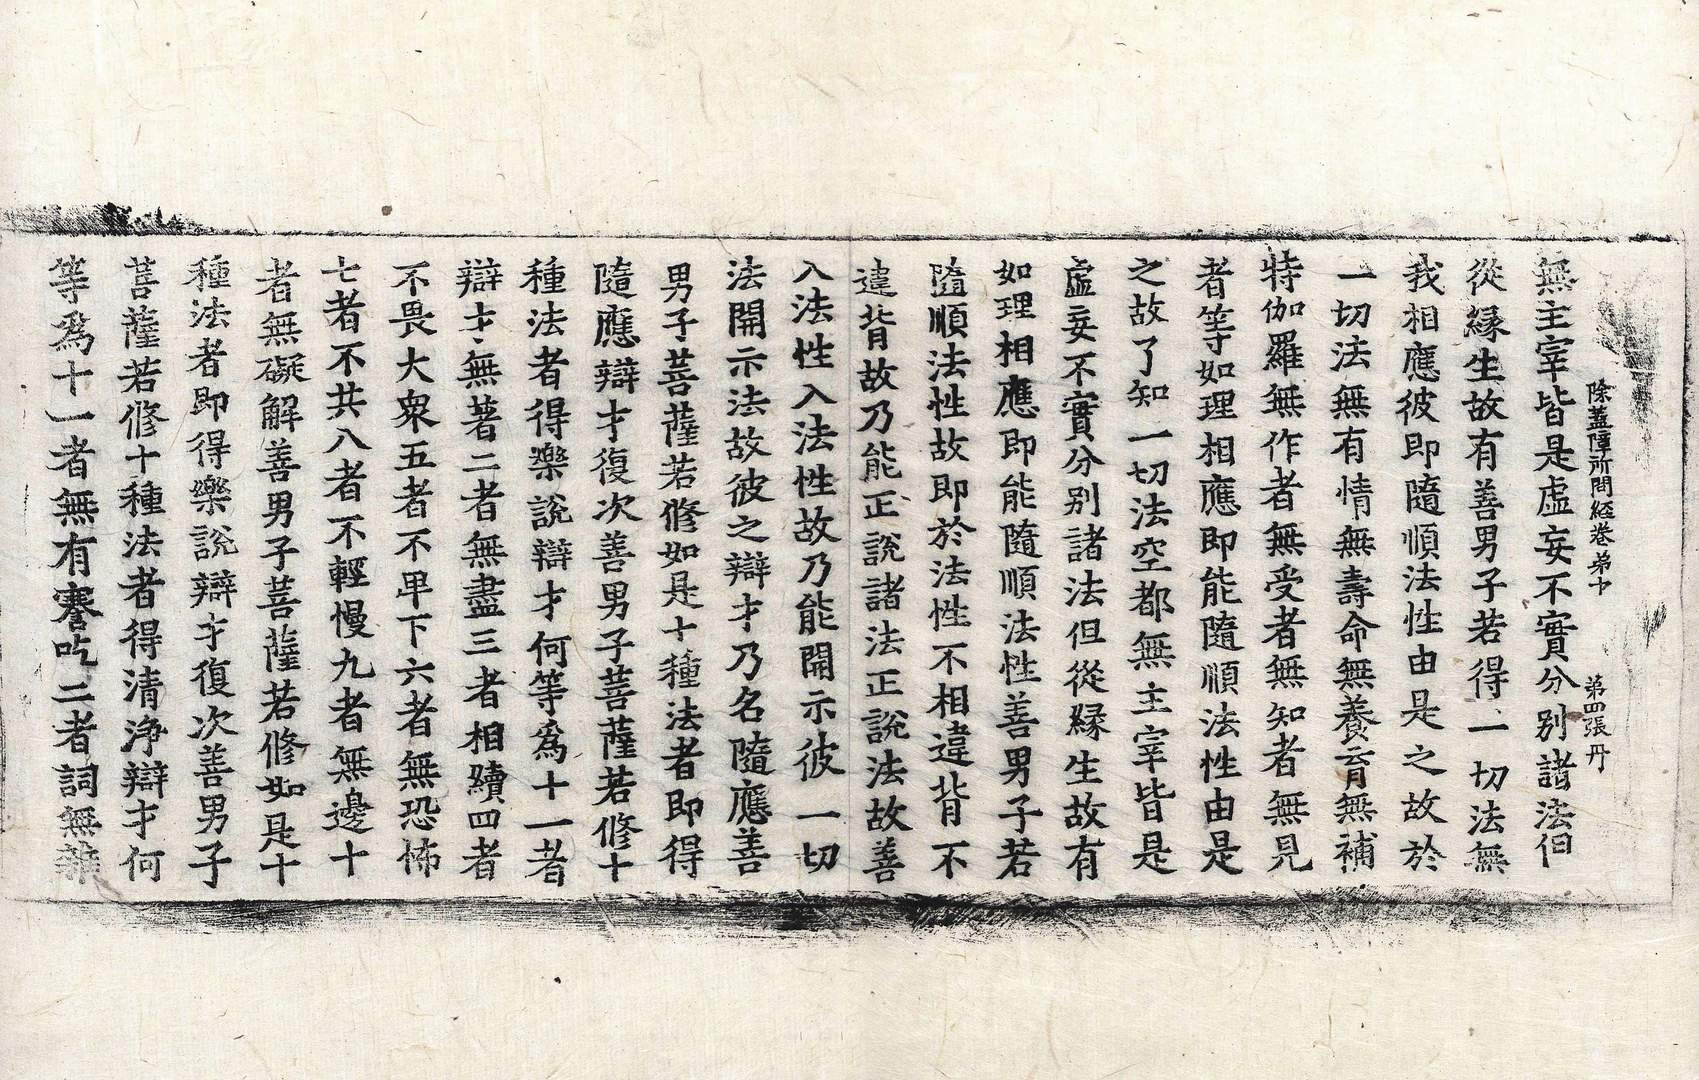 除蓋障所問經卷弟十　第四張　丹
無主宰皆是虛妄不實分別諸法但
從緣生故有善男子若得一切法無
我相應彼即隨順法性由是之故於
一切法無有情無壽命無養育無補
特伽羅無作者無受者無知者無見
者等如理相應即能隨順法性由是
之故了知一切法空都無主宰皆是
虛妄不實分別諸法但從緣生故有
如理相應即能隨順法性善男子若
隨順法性故即於法性不相違背不
違背故乃能正說諸法正說法故善
入法性入法性故乃能開示彼一切
法開示法故彼之辯才乃名隨應善
男子菩薩若修如是十種法者即得
隨應辯才復次善男子菩薩若修十
種法者得樂說辯才何等爲十一者
辯才無著二者無盡三者相續四者
不畏大衆五者不卑下六者無恐怖
七者不共八者不輕慢九者無邊十
者無礙解善男子菩薩若修如是十
種法者即得樂說辯才復次善男子
菩薩若修十種法者得清淨辯才何
等爲十一者無有謇吃二者詞無雜